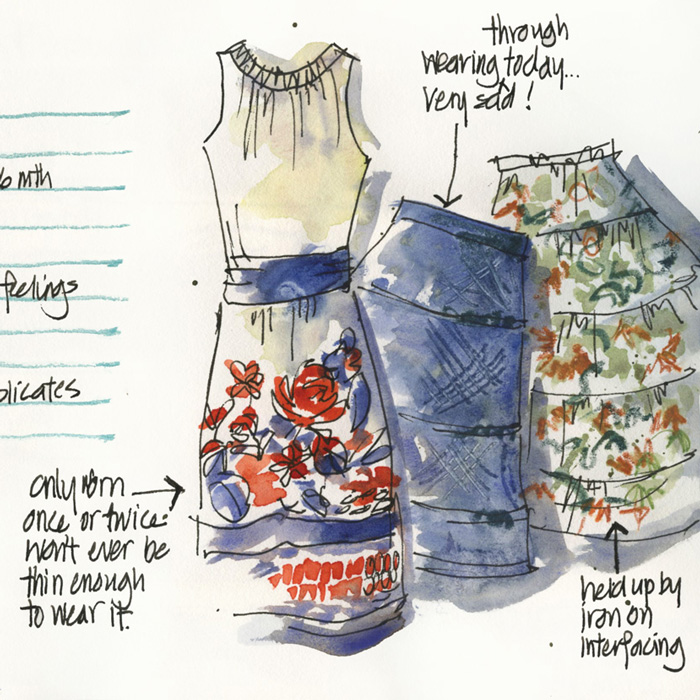 6 mth
feelings
plicates
through
wearing today...
very sad!
only worn
once or twice.
won't ever be
thin enough
to wear it.
held up by
iron on
interfacing